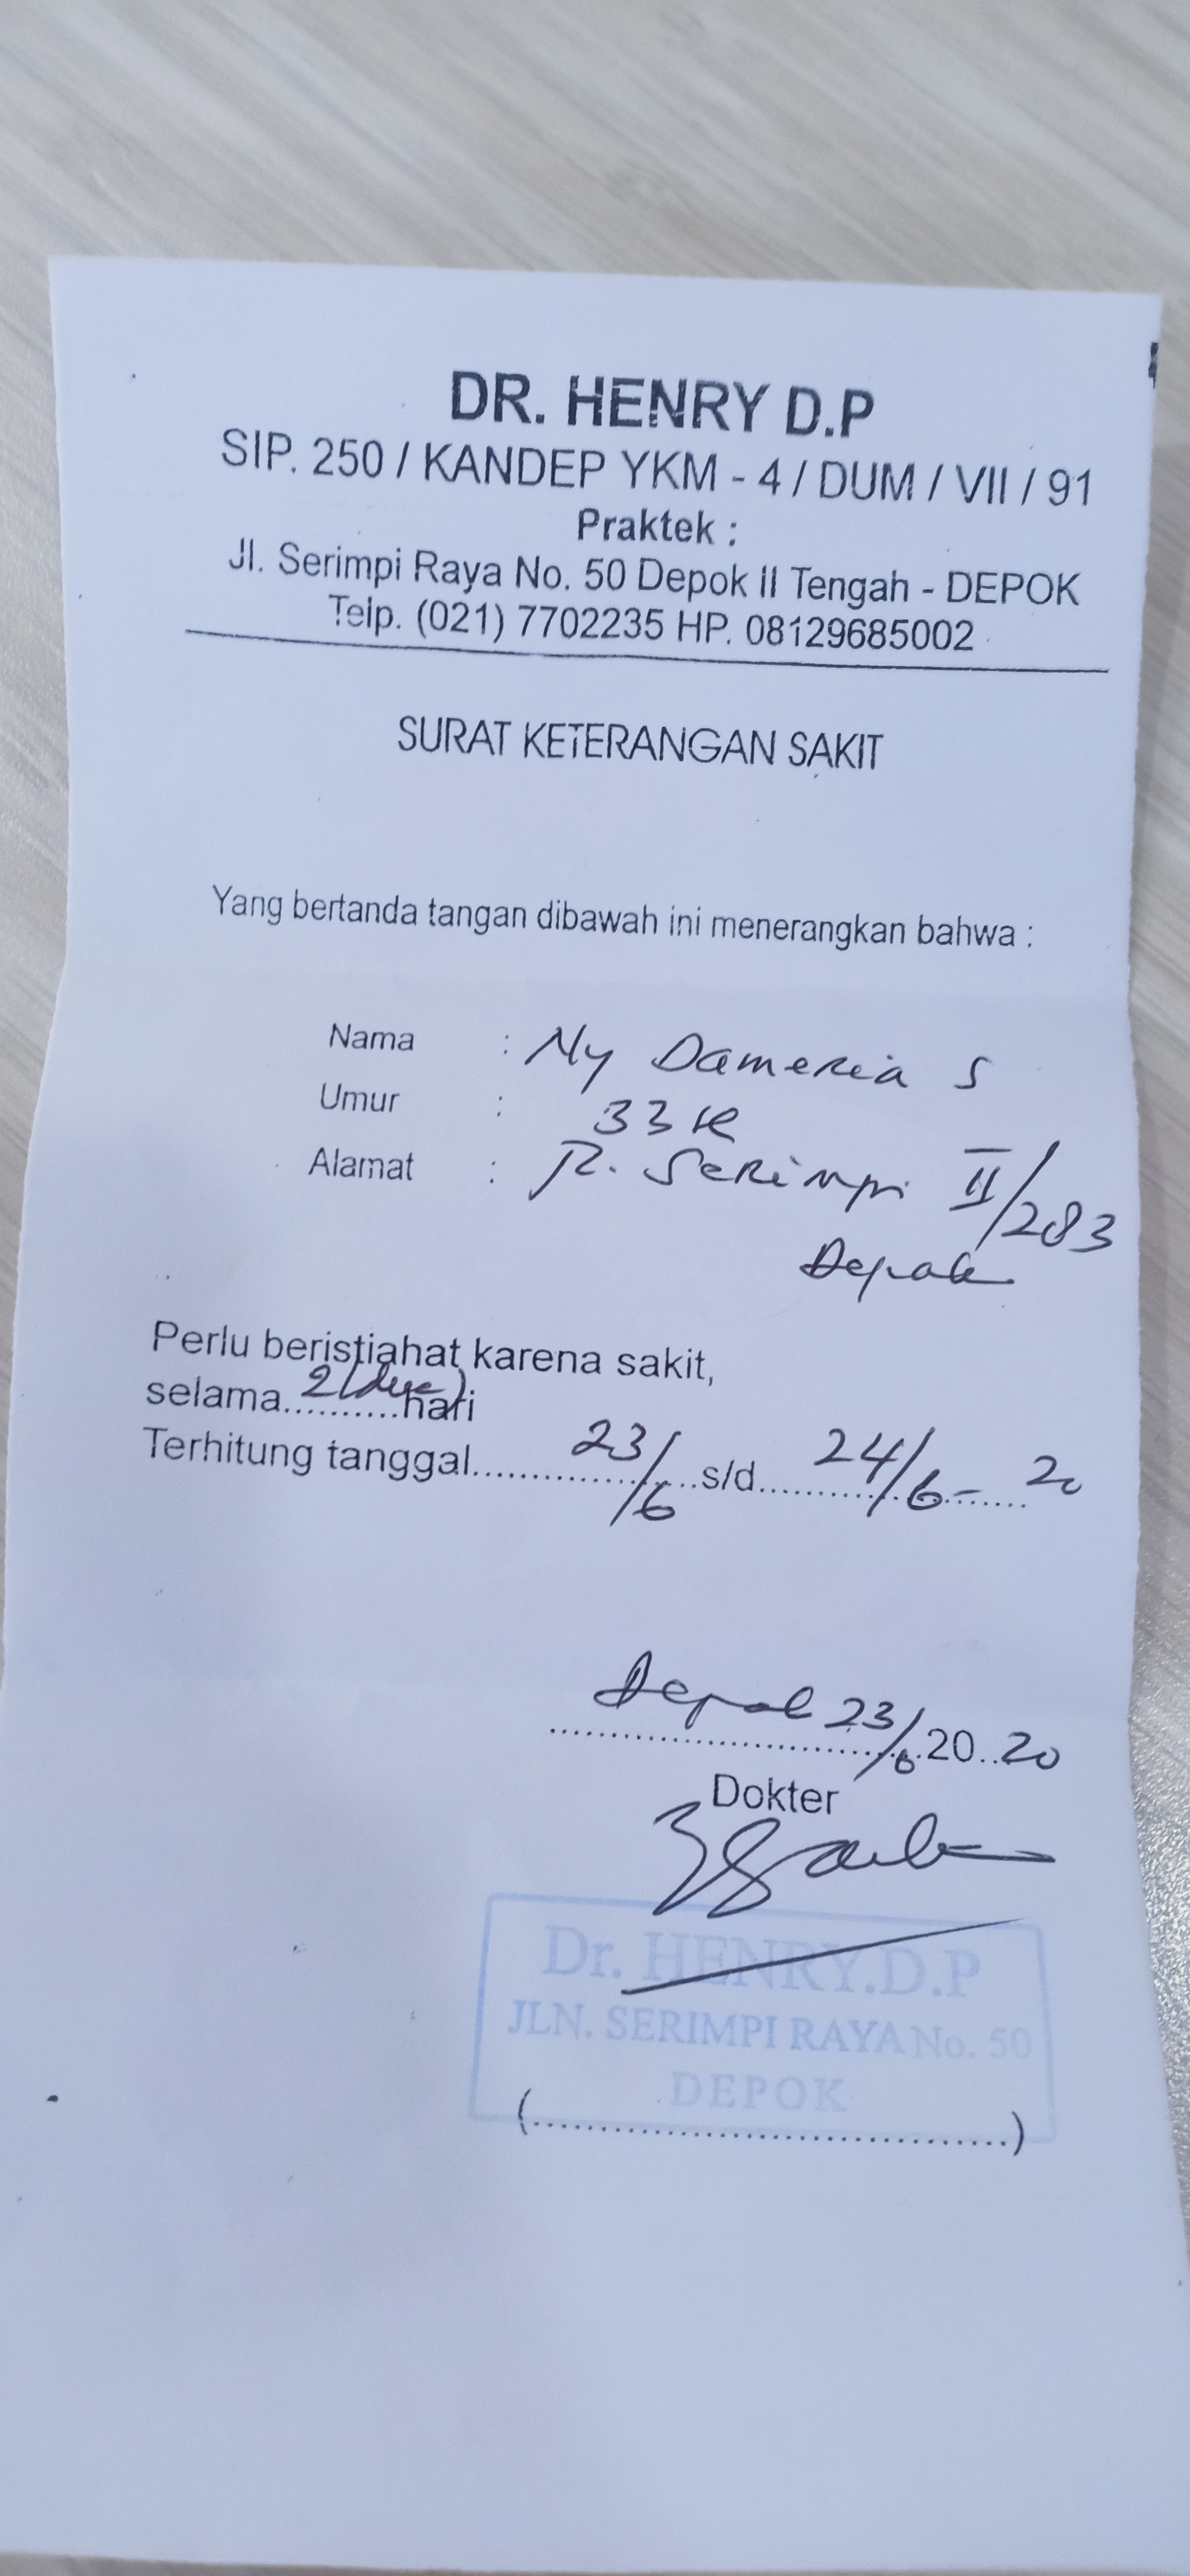 DR. HENRY D.P
SIP. 250 / KANDEP YKM - 4 / DUM / VII / 91
Praktek :
Jl. Serimpi Raya No. 50 Depok II Tengah - DEPOK
Telp. (021) 7702235 HP. 08129685002
SURAT KETERANGAN SAKIT
Yang bertanda tangan dibawah ini menerangkan bahwa :
Nama : Ny Dameria S
Umur : 33
Alamat : Serimpi II/283
Depok
Perlu beristiahat karena sakit,
selama 2 (dua) hari
Terhitung tanggal 23/6 s/d 24/6 - 20
Depok 23/6 20 20
Dokter
Dr. HENRY.D.P
JLN. SERIMPI RAYA No. 50
DEPOK
(..................................)